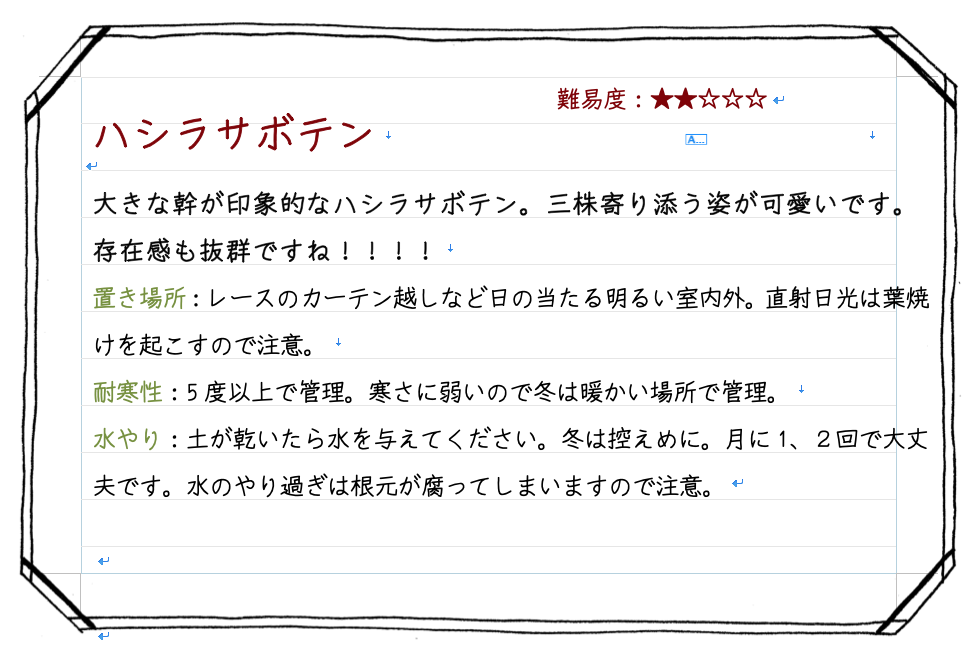 難易度：★★☆☆☆
ハシラサボテン
A...
大きな幹が印象的なハシラサボテン。三株寄り添う姿が可愛いです。
存在感も抜群ですね！！！！
置き場所：レースのカーテン越しなど日の当たる明るい室内外。直射日光は葉焼
けを起こすので注意。
耐寒性：5度以上で管理。寒さに弱いので冬は暖かい場所で管理。
水やり：土が乾いたら水を与えてください。冬は控えめに。月に1、２回で大丈
夫です。水のやり過ぎは根元が腐ってしまいますので注意。